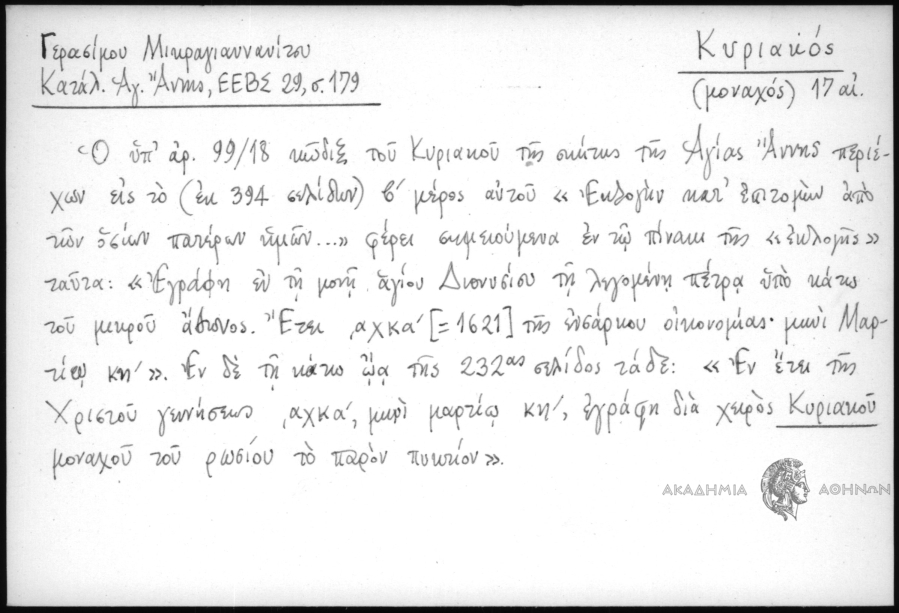 Γερασίμου Μικραγιαννανίτου
Κατάλ. Ἁγ. Ἄννης, ΕΕΒΣ 29, σ. 179
Κυριακός
(μοναχός) 17 αἰ.
Ὁ ὑπ' ἀρ. 99/18 κῶδιξ τοῦ Κυριακοῦ τῆς σκήτης τῆς Ἁγίας Ἄννης περιέ-
χων εἰς τὸ (ἐκ 394 σελίδων) β' μέρος αὐτοῦ « Ἐκλογὴν κατ' ἐπιτομὴν ἀπὸ
τῶν ὁσίων πατέρων ἡμῶν...» φέρει σημειούμενα ἐν τῷ πίνακι τῆς «ἐκλογῆς»
ταῦτα: «Ἐγράφη ἐν τῇ μονῇ ἁγίου Διονυσίου τῇ λεγομένῃ πέτρᾳ ὑπὸ κάτω
τοῦ μικροῦ ἄθωνος. Ἔτει ͵αχκα' [=1621] τῆς ἐνσάρκου οἰκονομίας· μηνὶ Μαρ-
τίῳ κη' ». Ἐν δὲ τῇ κάτω ᾤᾳ τῆς 232ας σελίδος τάδε: « Ἐν ἔτει τῆς
Χριστοῦ γεννήσεως ͵αχκα', μηνὶ μαρτίῳ κη', ἐγράφη διὰ χειρὸς Κυριακοῦ
μοναχοῦ τοῦ ρωσίου τὸ παρὸν πυκτίον».
ΑΚΑΔΗΜΙΑ ΑΘΗΝΩΝ